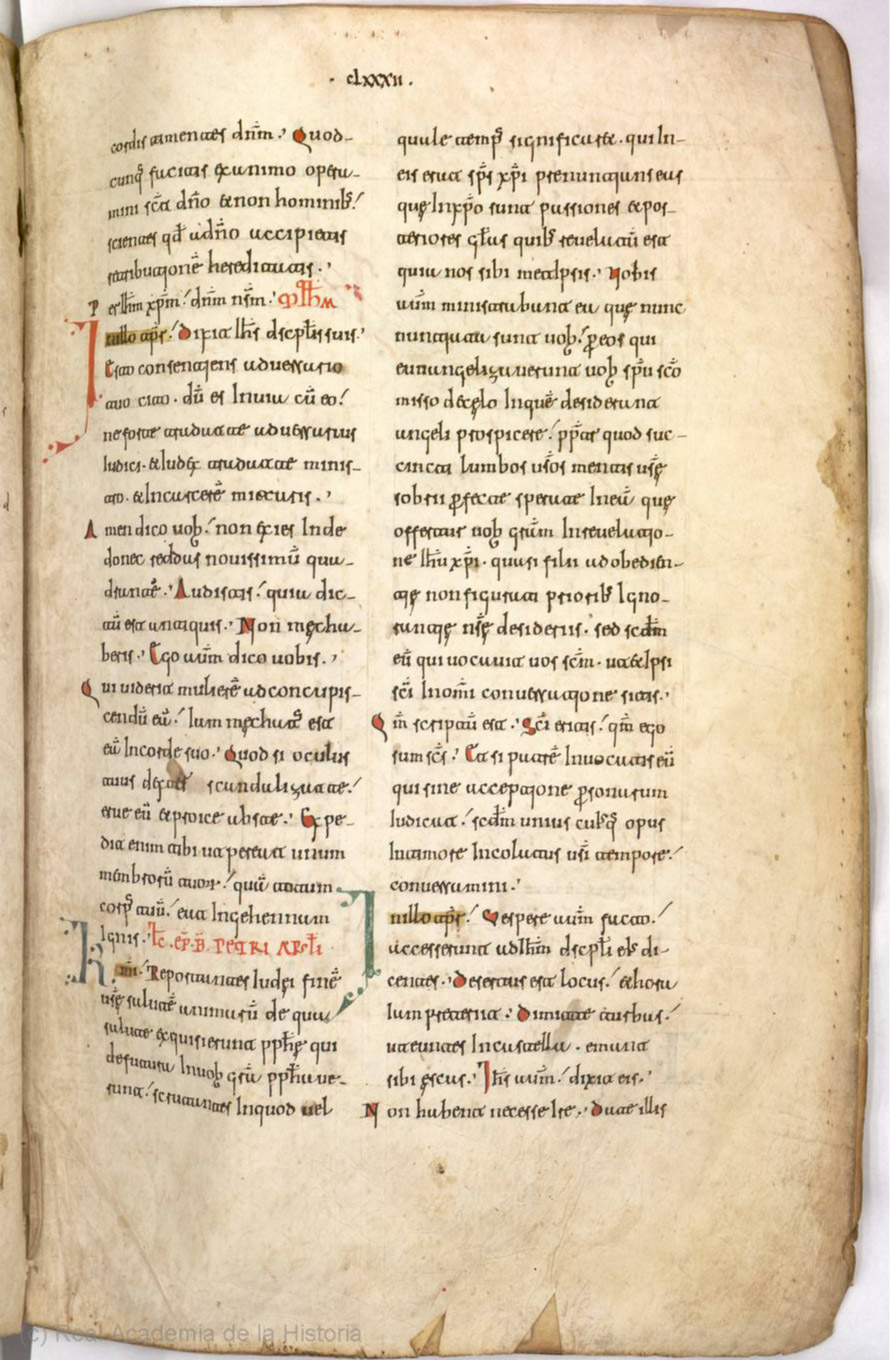 · clxxxii ·
cordis timentes dñm. Quod-
cunq̄ faciatis ex animo opera-
mini sc̄t dño et non hominib;
scientes qđ a dño accipietis
retributionē hereditatis.
Per ihm xp̄m dnm nsm.
In illo tp̄r. Dixit ihs discplis suis.
Esto consentiens aduersario
tuo cito. dū es in uia cū eo
ne forte tradat te aduersarius
iudici. et iudex tradat te minis-
tro. et in carcerē mitaris.
Amen dico uob. non exies inde
donec reddas nouissimū qua-
drantē. Audistis quia dic-
tū est antiquis. Non mechα-
beris. Ego aūm dico uobis.
Qui uiderit mulierē ad concupis-
cendū eā iam mechatꝰ est
eā in corde suo. Quod si oculus
tuus dexter scandalizat te
erue eū et proice abs te. Expe-
dit enim tibi ut pereat unum
membrorū tuorꝝ quā totum
corpꝰ tuū eat in gehennam
ignis. Lc̄. EP̄. B. PETRI APSTLI
Kmi. Reportantes fidei finē
nsē salutē animarū de qua
salute exquisierunt pphē qui
de futura in uob grā pphauer-
unt scrutantes in quod uel
quale temp̄ significaret. qui in-
eis erat sps xpi prenuntians eas
que in xpo sunt passiones et pos-
teriores glas quib reuelatū est
quia non sibi metipsis. Nobis
aūm ministrabant ea que nunc
nuntiata sunt uob per eos qui
euangelizauerunt uob spu sco
misso de celo in quē desiderant
angeli prospicere ppter quod suc-
cincti lumbos ūsos mentis usē
sobrii perfecte sperate in eā que
offertur uob grām in reuelatio-
ne ihu xpi. quasi filii obedien-
tie non figurati priorib igno-
rantie nse desideriis. sed scdm
eū qui uocauit uos scm. ut et ipsi
sci in nomi conuersatione sitis.
Qm scriptū est. Sci eritis qm ego
sum scs. Et si patrē inuocatis eū
qui sine acceptione personarum
iudicat scdm unius cuiusq̄ opus
in timore incolatus usi tempore
conuersamini.
In illo tpr. Vespere aūm facto
accesserunt ad ihm discpli eius di-
centes. Desertus est locus et hora
iam preterit. Dimitte turbas
ut euntes in castella. emant
sibi escas. Ihs aūm dixit eis.
Non habent necesse ire. Date illis
(c) Real Academia de la Historia